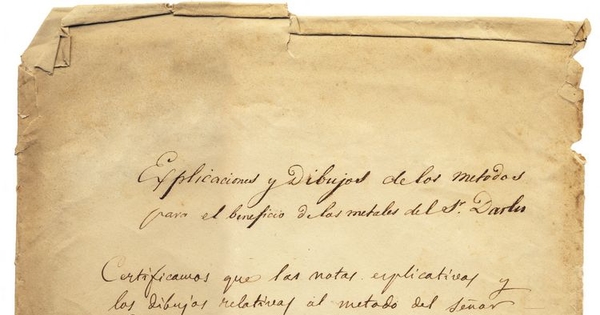 Explicaciones y Dibujos de los metodos
para el beneficio de los metales del Sr. Darlu
Certificamos que las notas explicativas y
los dibujos relativas al metodo del señor